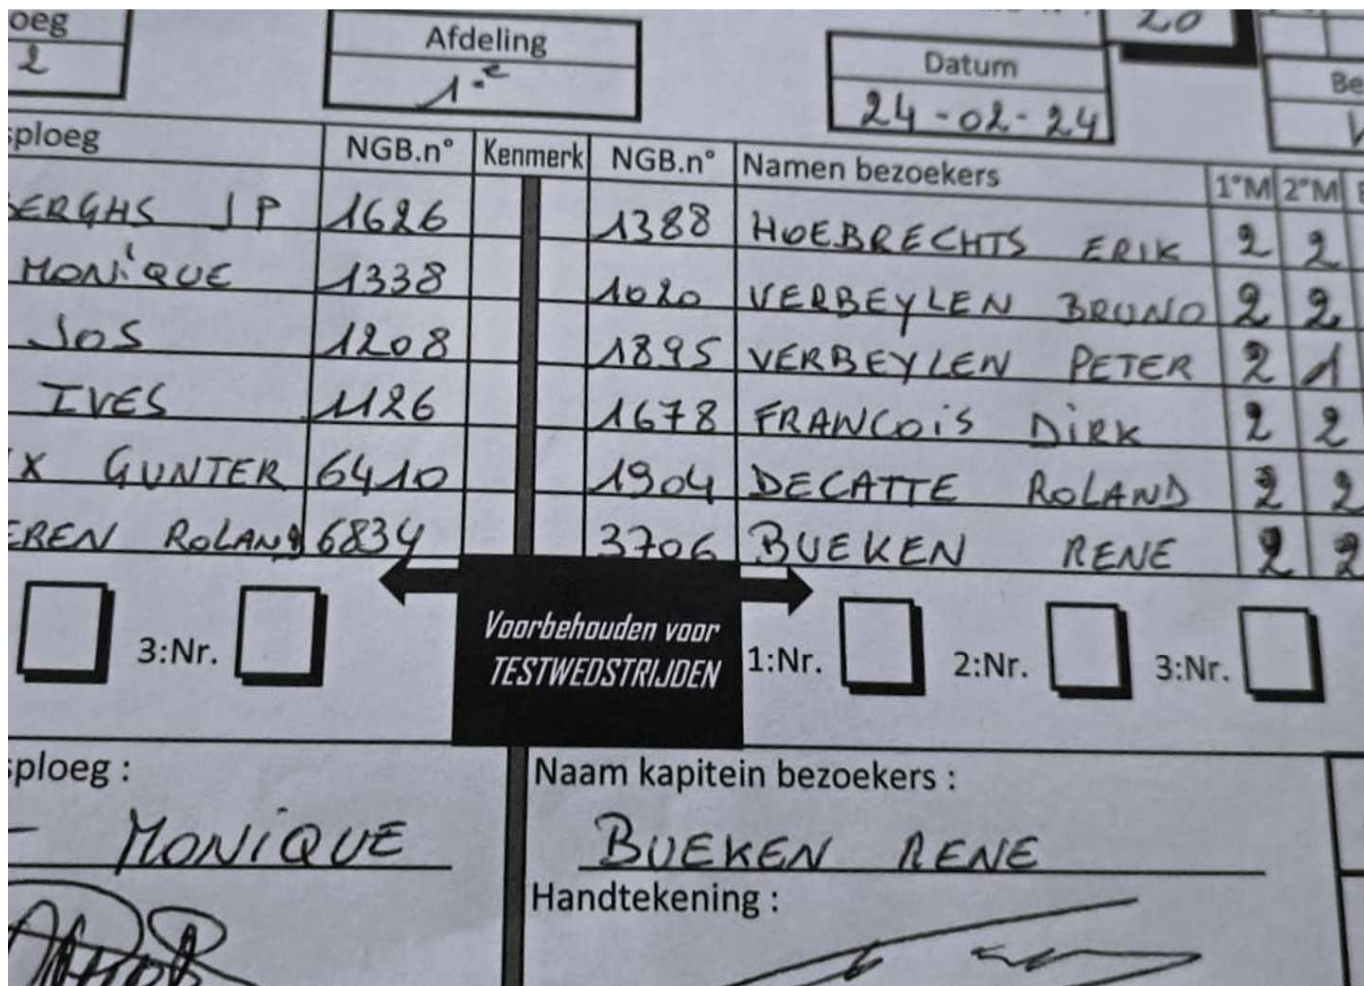 oeg
2
Afdeling
1.e
20
Datum
24-02-24
Be
sploeg NGB.n° Kenmerk NGB.n° Namen bezoekers 1°M 2°M
BERGHS JP 1626 1388 HOEBRECHTS ERIK 2 2
MONiQUE 1338 1020 VERBEYLEN BRUNO 2 2
JOS 1208 1895 VERBEYLEN PETER 2 1
IVES 1126 1678 FRANCOiS DiRK 2 2
X GUNTER 6410 1904 DECATTE ROLAND 2 2
EREN ROLAND 6834 3706 BUEKEN RENE 2 2
3:Nr.
Voorbehouden voor
TESTWEDSTRIJDEN
1:Nr. 2:Nr. 3:Nr.
sploeg :
MONiQUE
Naam kapitein bezoekers :
BUEKEN RENE
Handtekening :